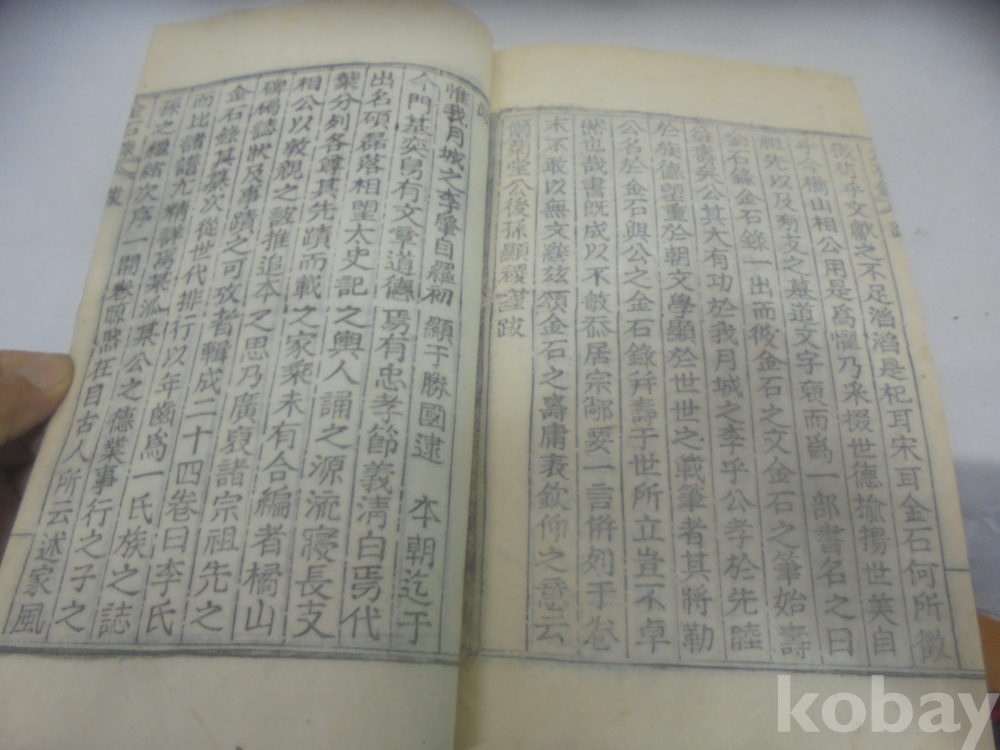 不足滔滔是杞耳宋耳金石何所徵
徵為乎文獻之
乎今橘山相公用是爲懼乃采掇世德揄揚世美自
祖先以及旁支之墓道文字裒而爲一部書名之曰
金石錄金石錄一出而後金石之文金石之筆始壽
吳公其大有功於我月城之李乎公孝於先睦
於族德望重於朝文學顯於世世之載筆者其將勒
公名於金石與公之金石錄幷壽于世所立豈不卓
然也哉書旣成以不敏忝居宗鄙要一言倂列于卷
末不敢以無文辭玆頌金石之壽庸表欽仰之意云
菊堂公後孫顯稷謹跋
惟我月城之李肇自羅初 顯于勝國逮 本朝迄于
今門基奕舃有文章道德 焉有忠孝節義淸白焉代
出名碩磊落相望太史記之輿人誦之源流寢長支
葉分列各葺其先蹟而載之家乘未有合編者橘山
相公以敦親之誼推追本之思乃廣裒諸宗祖先之
碑碣誌狀及事蹟之可攷者輯成二十四卷曰李氏
金石錄其纂次從世代排行以年齒爲一氏族之誌
而比諸譜尤精詳焉某派某公之德業事行之子之
孫之繼緖次序一開卷瞭然在目古人所云述家風
金石錄 跋
kobay